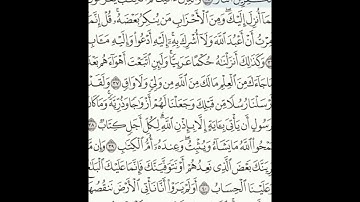 مَآ أُنزِلَ إِلَيْكَ وَمِنَ ٱلْأَحْزَابِ مَن يُنكِرُ بَعْضَهُۥ قُلْ إِنَّمَا
مِرْتُ أَنْ أَعْبُدَ ٱللَّهَ وَلَآ أُشْرِكَ بِهِۦٓ إِلَيْهِ أَدْعُوا۟ وَإِلَيْهِ مَـَٔا
وَكَذَٰلِكَ أَنزَلْنَٰهُ حُكْمًا عَرَبِيًّا وَلَئِنِ ٱتَّبَعْتَ أَهْوَآءَهُم بَعْ
مَا جَآءَكَ مِنَ ٱلْعِلْمِ مَا لَكَ مِنَ ٱللَّهِ مِن وَلِىٍّ وَلَا وَاقٍ ٣٧
رْسَلْنَا رُسُلًا مِّن قَبْلِكَ وَجَعَلْنَا لَهُمْ أَزْوَٰجًا وَذُرِّيَّةً وَمَا كَانَ
رَسُولٍ أَن يَأْتِىَ بِـَٔايَةٍ إِلَّا بِإِذْنِ ٱللَّهِ لِكُلِّ أَجَلٍ كِتَابٌ ٣٨
مْحُوا۟ ٱللَّهُ مَا يَشَآءُ وَيُثْبِتُ وَعِندَهُۥٓ أُمُّ ٱلْكِتَٰبِ ٣٩
رِيَنَّكَ بَعْضَ ٱلَّذِى نَعِدُهُمْ أَوْ نَتَوَفَّيَنَّكَ فَإِنَّمَا عَلَيْكَ ٱلْبَلَٰ
عَلَيْنَا ٱلْحِسَابُ ٤٠ أَوَلَمْ يَرَوْا۟ أَنَّا نَأْتِى ٱلْأَرْضَ نَنقُصُهَا